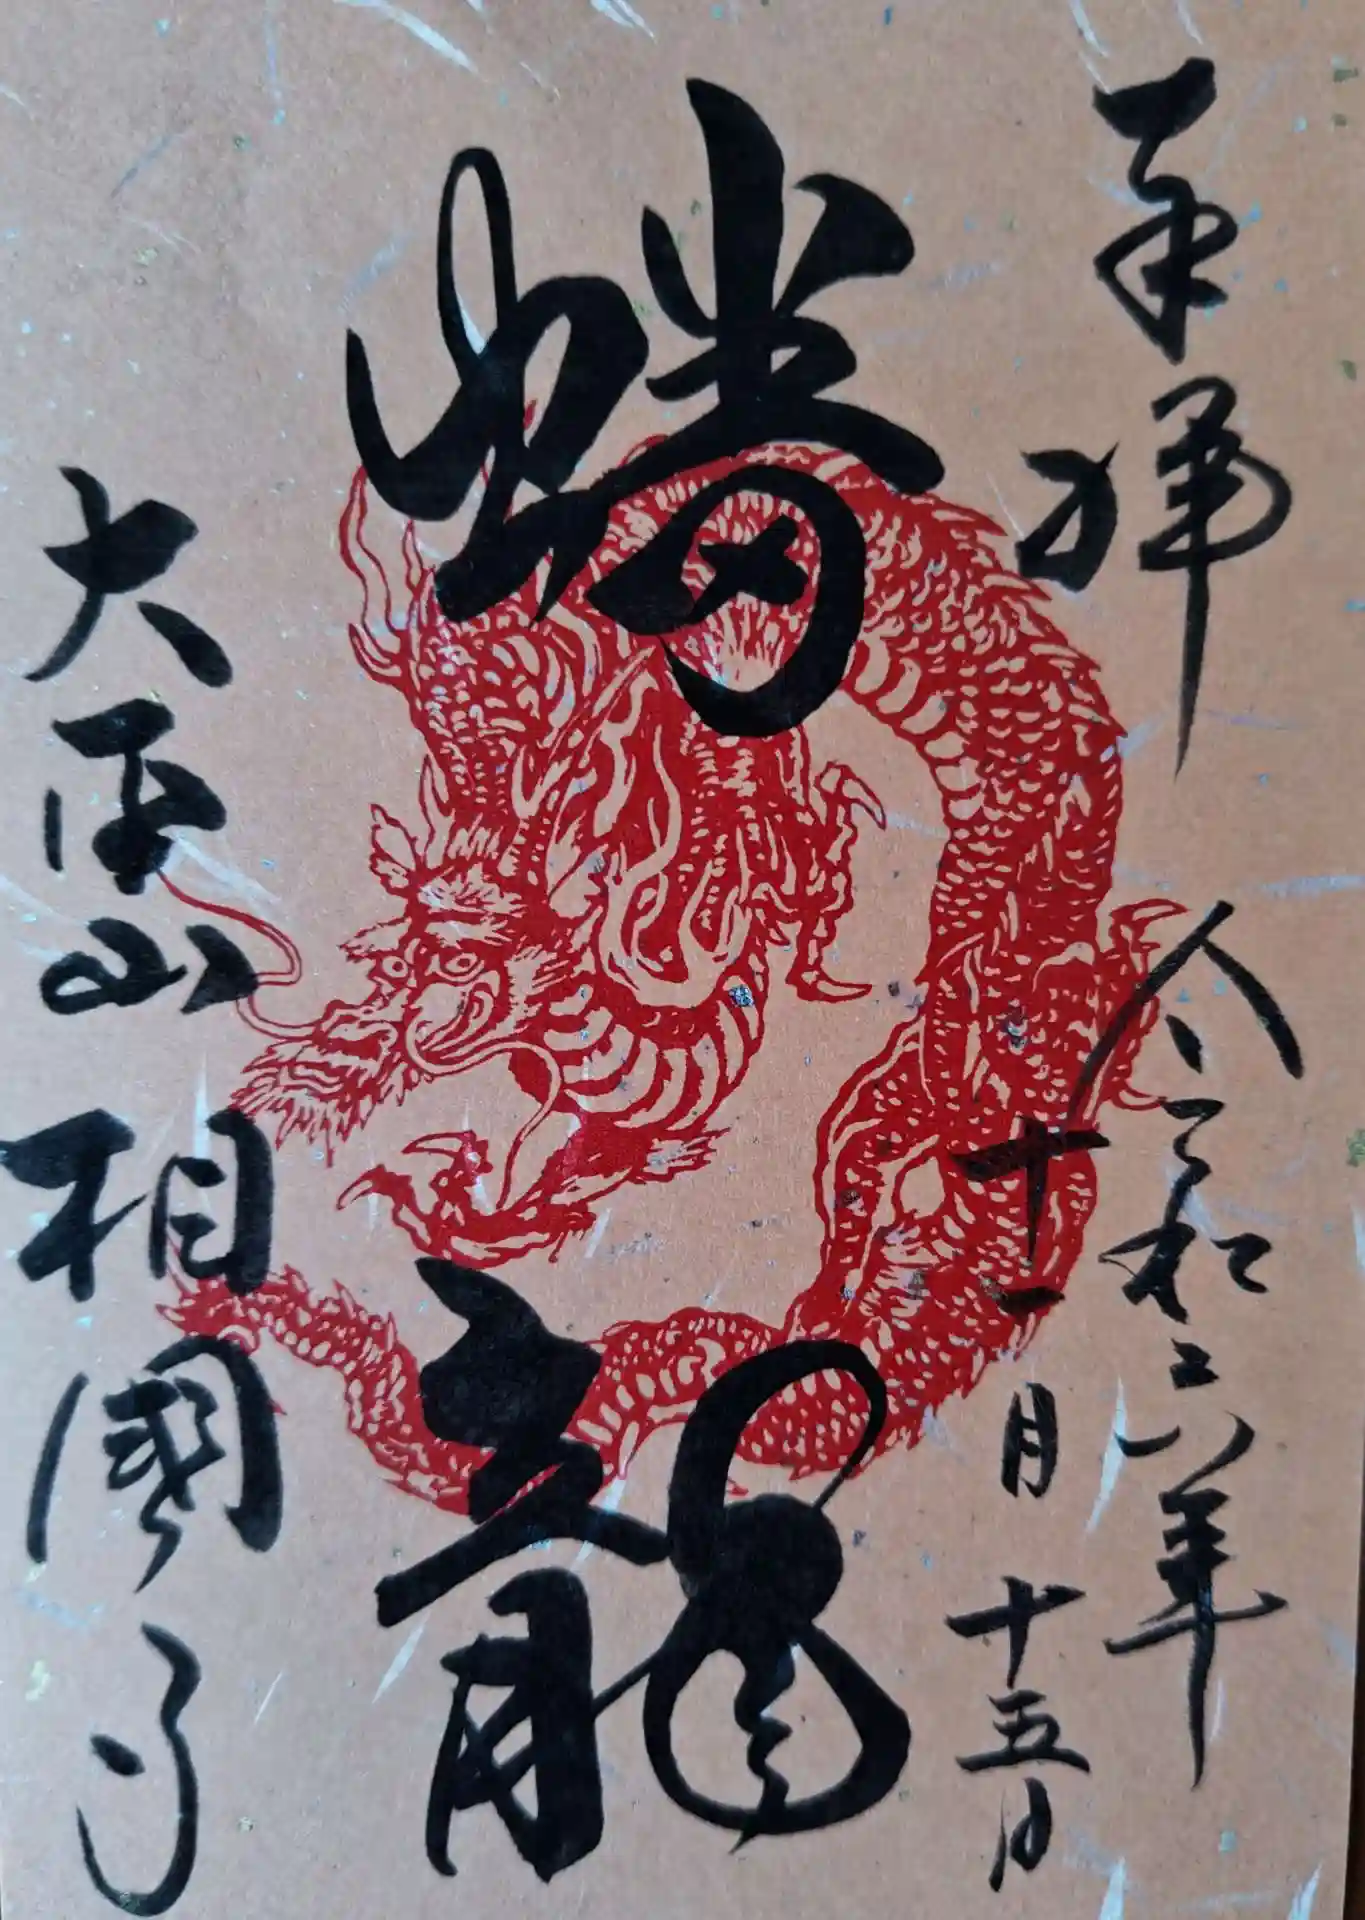 奉拝 令和六年
十一月十五日
蟠龍
大本山 相國寺